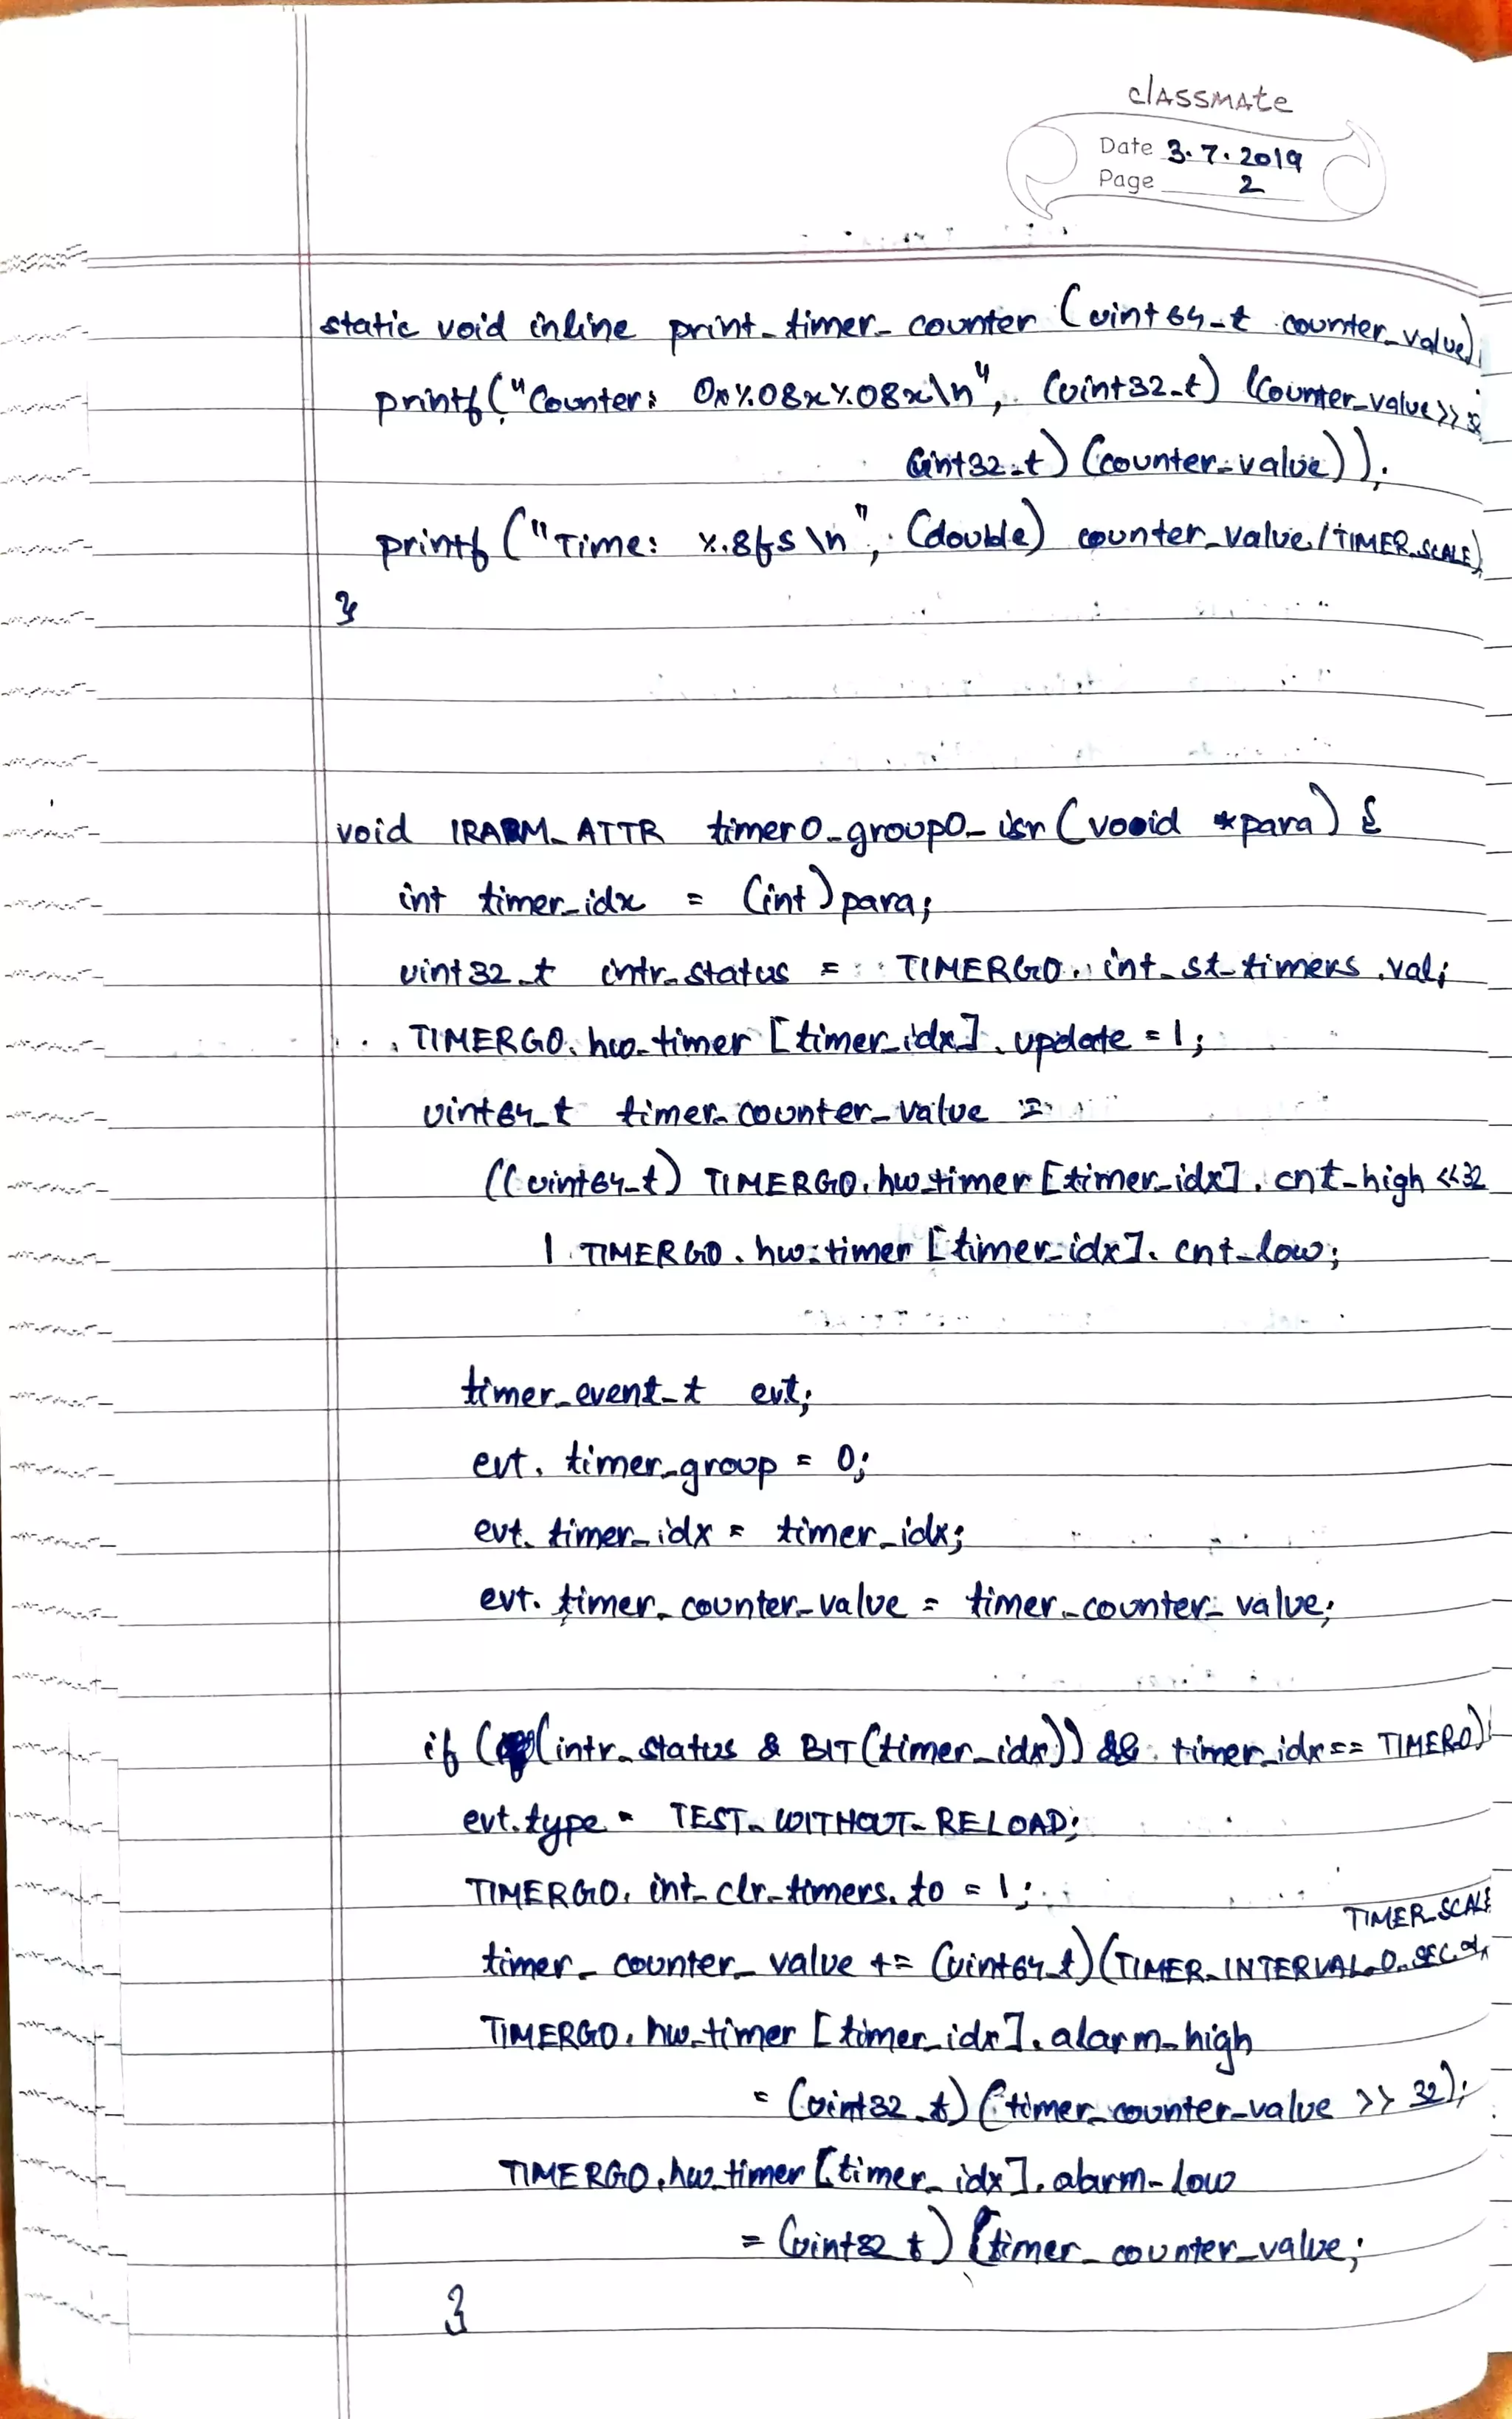 classmate
Date 3.7.2019
Page 2
static void inline print_timer_counter (uint64_t counter_value)
printf("Counter: 0x%08x%08x\n", (uint32_t) (counter_value>>32
(uint32_t) (counter_value));
printf ("Time: %.8fs\n", (double) counter_value/TIMER_SCALE);
}
void IRARM_ATTR timer0_group0_isr (void *para) {
int timer_idx = (int) para;
uint32_t intr_status = TIMERG0.int_st_timers.val;
TIMERG0.hw_timer [timer_idx].update = 1;
uint64_t timer_counter_value =
((uint64_t) TIMERG0.hw_timer [timer_idx].cnt_high <<32
| TIMERG0.hw_timer [timer_idx].cnt_low;
timer_event_t evt;
evt.timer_group = 0;
evt.timer_idx = timer_idx;
evt.timer_counter_value = timer_counter_value;
if ((intr_status & BIT(timer_idx)) && timer_idx == TIMER0)
evt.type = TEST_WITHOUT_RELOAD;
TIMERG0.int_clr_timers.t0 = 1;
TIMER_SCALE
timer_counter_value += (uint64_t) (TIMER_INTERVAL_0_SEC *
TIMERG0.hw_timer [timer_idx].alarm_high
= (uint32_t) (timer_counter_value >> 32);
TIMERG0.hw_timer [timer_idx].alarm_low
= (uint32_t) (timer_counter_value;
}